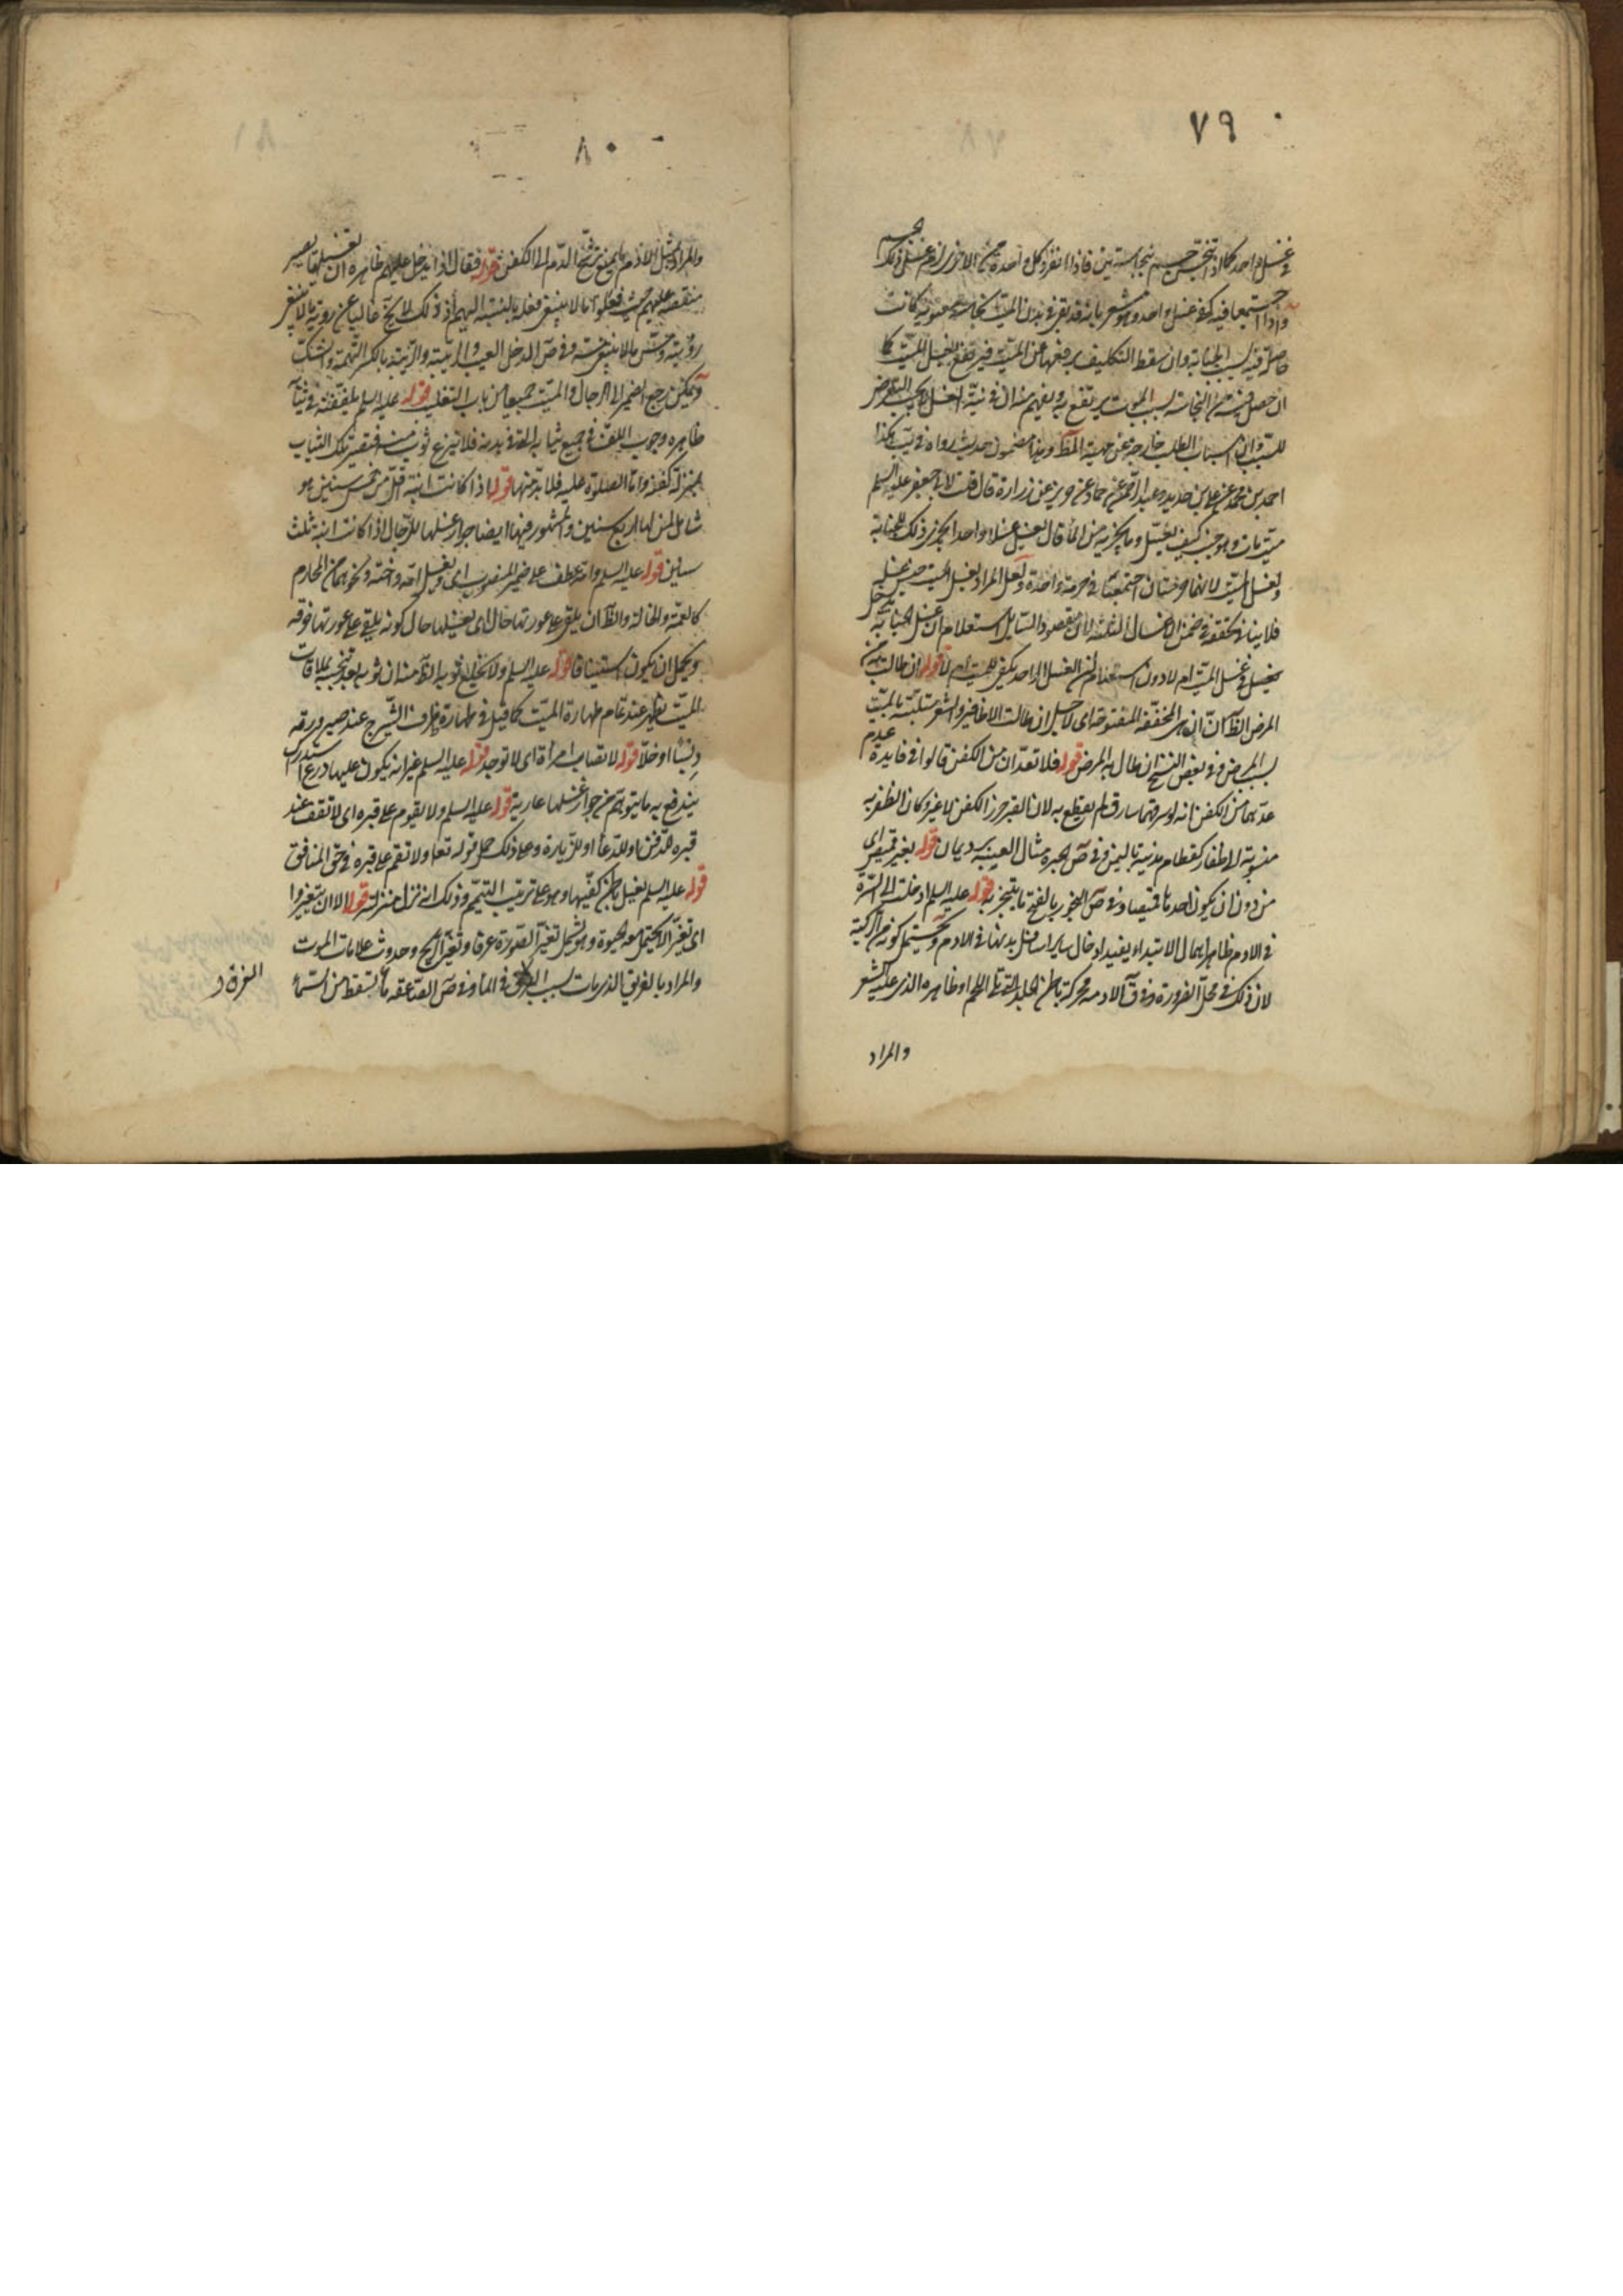 ٧٩
في غسل واحد كما اذا تنجس جسم بنجاستين فاذا انفرد كل واحدة من الاخرى لزم غسل ذلك الجسم
واذا اجتمعا فيه كفى غسل واحد وهو مشعر بانه قد بقى في بدن الميت نجاسة معنوية كانت
حاصلة فيه بسبب الجنابة وان سقط التكليف برفعها عن الميت فيرتفع بغسل الميت كما
ان حصل فيه من النجاسة بسبب الموت يرتفع به ويفهم منه ان في نية الغسل لا يجب التعرض
للسبب وان اسباب الطلب خارجة عن جهة وهذا مضمون حديث رواه في يب هكذا
احمد بن محمد عن علي بن حديد وعبد الرحمن عن حماد عن حريز عن زرارة قال قلت لابي جعفر عليه السلم
ميت مات وهو جنب كيف يغسل وما يجزيه من الماء قال يغسل غسلا واحدا يجزى ذلك للجنابة
ولغسل الميت لانهما حرمتان اجتمعتا في حرمة واحدة ولعل المراد بغسل الميت جنس غسله
فلا ينافي تحققه في ضمن الاغسال الثلثة لان مقصود السايل استعلام ان غسل الجنابة يدخل
في غسل الميت ام لا دون استعلام ان الغسل الواحد يكفى للميت ام لا قوله ان طالت به من
المرض الظ ان ان هي المخففة المفتوحة اى لاجل ان طالت الاظافير والشعر متلبسة بالميت
بسبب المرض وفي بعض النسخ ان طال به المرض قوله فلا تعدان من الكفن قالوا في فايدة عدم
عدهما من الكفن انه لو سرقهما سارق لم يقطع به لان القبر حرز الكفن لا غير وكان الظفرية
منسوبة الى ظفار كقطام مدينة باليمن وفي ص الحبرة مثال العنبة برد يمان قوله بغير قميص اى
من دون ان يكون احدها قميصا وفي ص البخور بالفتح ما يتبخر به قوله عليه السلم ادخلت الى السرة
في الادم ظاهر اهمال الابتداء يفيد ادخال ساير اسافل بدنها في الادم ويحتمل كونه من الركبة
لان ذلك في محل الضرورة وفي ق الادمة محركة باطن الجلد التي تلى اللحم او ظاهره الذى عليه الشعر
والمراد
٨٠
والمراد بمثل الادم ما يمنع ترشح الدم الى الكفن قوله فقال اذا يدخل عليهم ظاهره ان تغسيلها يصير
منقصة عليهم حيث فعلوا ما لا ينبغى فعله بالنسبة اليهم اذ ذلك لا يخ غالبا عن رؤية ما لا ينبغى
رؤيته ومس ما لا ينبغي مسه وفي ص الدخل العيب والريبة والريبة بالكسر التهمة والشك
ويمكن رجع الضمير الى الرجال والميت جميعا من باب التغليب قوله عليه السلم تلفنه في ثيابه
ظاهره وجوب اللف في جميع ثيابه التي في بدنه فلا ينزع ثوب منه فتصير تلك الثياب
بمنزلة كفنه واما الصلوة عليه فلا بد منها قوله اذا كانت ابنة اقل من خمس سنين هو
شامل لمن لها اربع سنين والمشهور فيها ايضا جواز غسلها للرجال اذا كانت ابنة ثلث
سنين قوله عليه السلم وامه عطف على ضمير المنصوب اى ويغسل امه واخته ونحوهما من المحارم
كالعمة والخالة والظ ان يلقى على عورتها حال اى يغسلها حال كونه يلقى على عورتها خرقة
ويحتمل ان يكون استينافا قوله عليه السلم ولا يخلع ثوبه الظ منه ان ثوبه بعد تنجسه بملاقات
الميت يطهر عند تمام طهارة الميت كما قيل في طهارة ظرف الشيرج عند صيرورته
دبسا او خلا قوله لا تصاب امرأة اى لا توجد قوله عليه السلم غير انه يكون عليها درع استدرك
يندفع به ما يتوهم من جواز غسلها عارية قوله عليه السلم ولا يقوم على قبره اى لا تقف عند
قبره للدفن او للدعاء او للزيارة وعلى ذلك حمل قوله تعا ولا تقم على قبره في حق المنافق
قوله عليه السلم يغسل باطن كفيها وهو على ترتيب التيمم وذلك انه نزل منزلته قوله الا ان يتغيروا
اى تغيرا لا يحتمل معه الحيوة وهو يشمل تغير الصورة عرفا وتغير الريح وحدوث علامات الموت
والمراد بالغريق الذى مات بسبب الغرق في الماء وفي ص الصاعقة ما تسقط من السماء